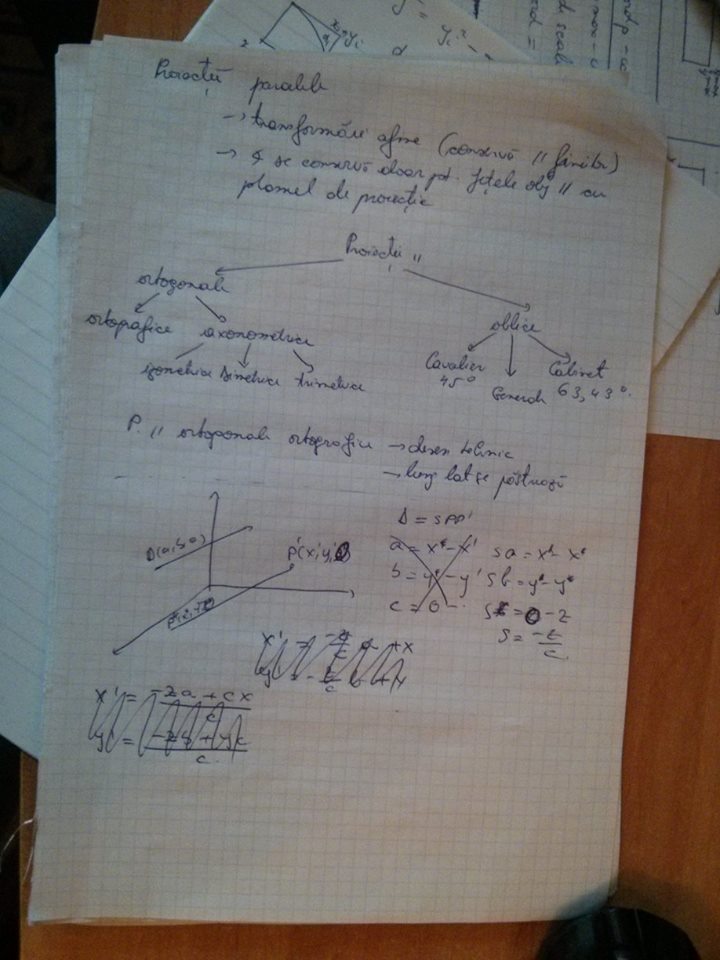 Proiecții paralele
→ transformări afine (conservă // liniilor)
→ ∢ se conservă doar pt. fețele obj // cu
planul de proiecție
Proiecții //
ortogonale
oblice
ortografice axonometrice
izometrice dimetrice trimetrice
Cavalier
45°
Generale
Cabinet
63,43°
P. // ortogonale ortografice → desen tehnic
→ lung lat se păstrează
D(a,b,c)
P'(x',y',0)
D = SPP'
a = x' - x'
b = y' - y'
c = 0 -
Sb = y' - y
= 0 - z
S = -z/c
x' = -z/c a + x
x' = -za + cx / c
y' = -zb + yc / c